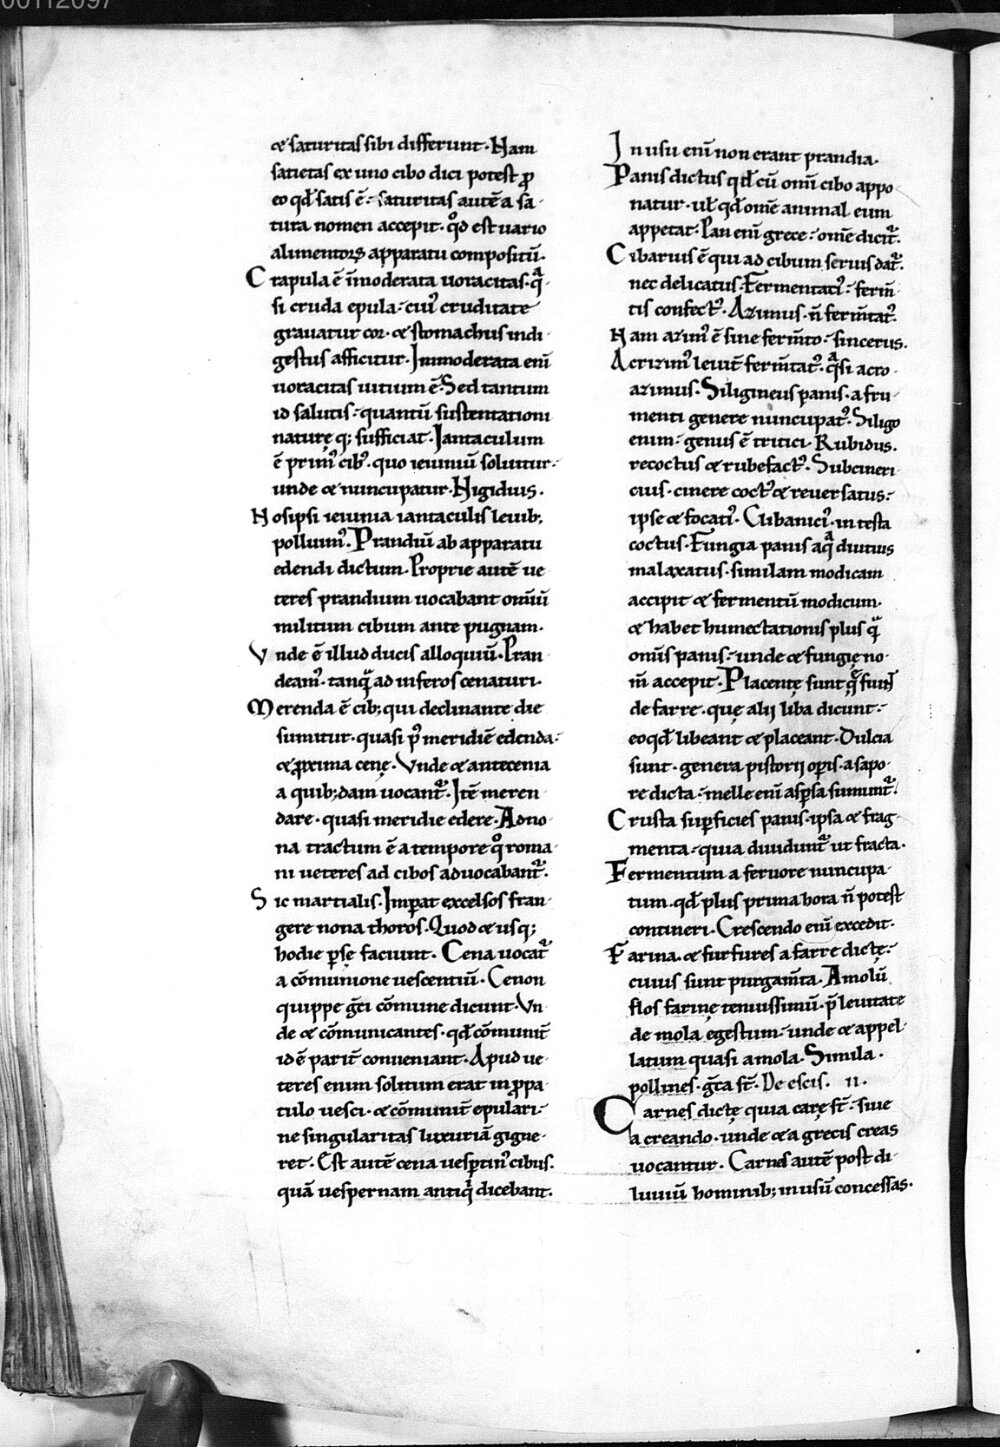 00112097
& saturitas sibi differunt. Nam
satietas ex uno cibo dici potest p̄
eo qd̄ satis ē. saturitas autē a sa
tura nomen accepit. qd̄ est uario
alimentoꝝ apparatu compositū.
Crapula ē īmoderata uoracitas. qͣ
si cruda epula. cuiꝰ cruditate
grauatur cor. & stomachus indi
gestus afficitur. Immoderata enī
uoracitas uitium ē. Sed tantum
id salutis. quantū sustentationi
naturę q; sufficiat. Iantaculum
ē primꝰ cibꝰ. quo ieiuniū soluitur.
unde & nuncupatur. Nigidius.
Nos ipsi ieiunia iantaculis leuib;
polluimꝰ. Prandiū ab apparatu
edendi dictum. Proprie autē ue
teres prandium uocabant omiū
militum cibum ante pugnam.
Vnde ē illud ducis alloquiū. Pran
deamꝰ. tanqͣ̄ ad inferos cenaturi.
Merenda ē cib; qui declinante die
sumitur. quasi pꝰ meridiē edenda.
& ꝓxima cenę. Vnde & antecenia
a quib;dam uocantᷣ. Itē meren
dare. quasi meridie edere. Adno
na tractum ē a tempore qͦ roma
ni ueteres ad cibos aduocabantᷣ.
Sic martialis. Imꝑat excelsos fran
gere nona thoros. Quod & usq;
hodie ꝑsę faciunt. Cena uocatᷣ
a cōmunione uescentiū. Cenon
quippe ḡci cōmune dicunt. Vn
de & cōmunicantes. qd̄ cōmunit̄
id ē parit̄ conueniant. Apud ue
teres enim solitum erat in ꝓpa
tulo uesci. & cōmunit̄ epulari.
ne singularitas luxuriā gigne
ret. Est autē cena uesꝑtinꝰ cibus.
quā uespernam antiqͥ dicebant.
In usu enī non erant prandia.
Panis dictus qd̄ cū omī cibo appo
natur. ul̄ qd̄ omē animal eum
appetat. Pan enī grece. omē dicitᷣ.
Cibarius ē qui ad cibum seruis datᷣ.
nec delicatus. Fermentaciꝰ. fermī
tis confectꝰ. Azimus. n̄ ferm̄tatꝰ.
Nam azimꝰ ē sine ferm̄to. sincerus.
Acrizimꝰ leuit̄ ferm̄tatꝰ. qͣsi acro
azimus. Siligineus panis. a fru
menti genere nuncupatꝰ. Siligo
enim. genus ē tritici. Rubidus.
recoctus & rubefactꝰ. Subcineri
cius. cinere coctꝰ & reuersatus.
ipse & focatiꝰ. Clibaniciꝰ. in testa
coctus. Fungia panis aqͣ diutius
malaxatus. similam modicam
accipit & fermentū modicum.
& habet humectationis plus qͣ̄
omīs panis. unde & fungię no
m̄ accepit. Placentę sunt quę fiunt
de farre. quę alij liba dicunt.
eo qd̄ libeant & placeant. Dulcia
sunt. genera pistorij oꝑis. a sapo
re dicta. melle enī asꝑsa sumuntᷣ.
Crusta suꝑficies panis. ipsa & frag
menta. quia diuiduntᷣ ut fracta.
Fermentum a feruore nuncupa
tum. qd̄ plus prima hora n̄ potest
contineri. Crescendo enī excedit.
Farina. & furfures a farre dictę.
cuius sunt purgam̄ta. Amolū
flos farinę tenuissimū. p̄ leuitate
de mola egestum. unde & appel
latum quasi amola. Simila.
pollines. g̃ca s̄t. De escis. II.
Carnes dictę quia carę s̄t. siue
a creando. unde & a gręcis creas
uocantur. Carnes autē post di
luuiū hominib; in usū concessas.